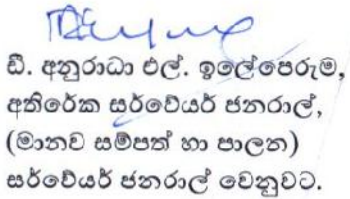 ඩී. අනුරාධා එල්. ඉලේපෙරුම,
අතිරේක සර්වේයර් ජනරාල්,
(මානව සම්පත් හා පාලන)
සර්වේයර් ජනරාල් වෙනුවට.